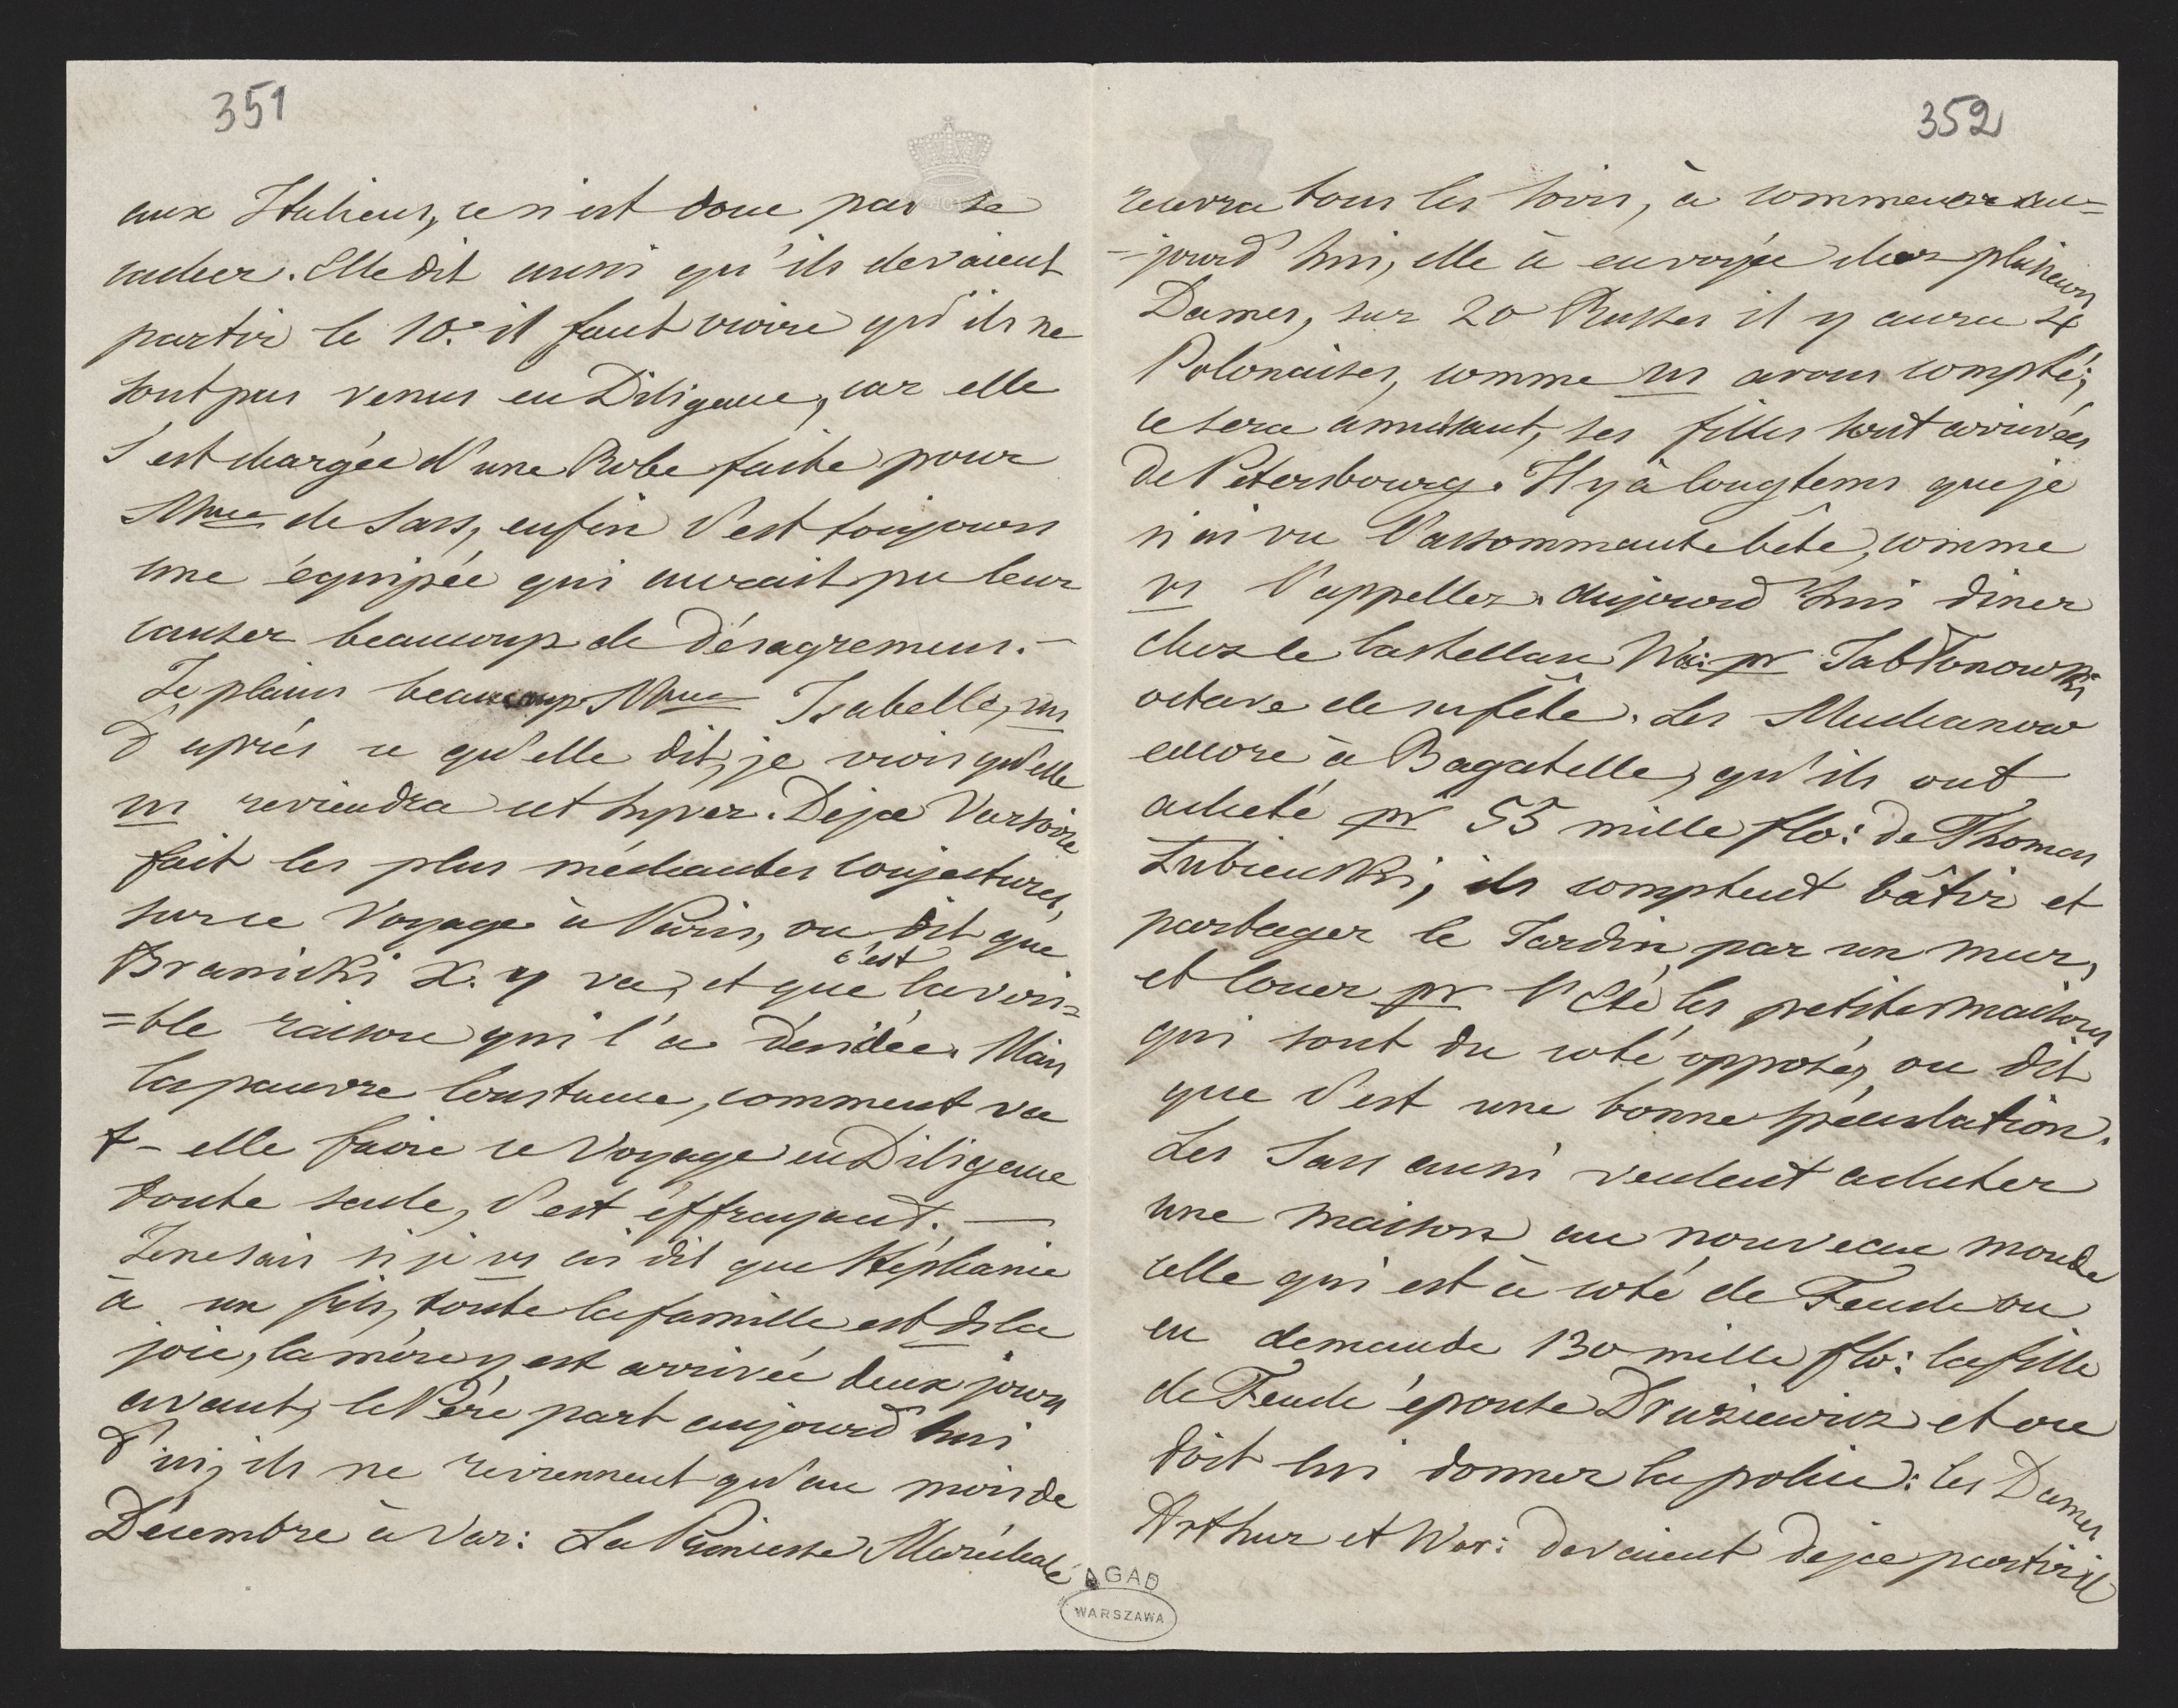 351
aux Italiens, ce n'est donc pas se
cacher. Elle dit aussi qu'ils devaient
partir le 10. il faut croire qu'ils ne
sont pas venus en Diligence, car elle
s'est chargée d'une Robe faite pour
Mme de Sass, enfin c'est toujours
une équipée qui aurait pu leur
causer beaucoup de désagremens. –
Je plains beaucoup Mme Isabelle, ns
d'après ce qu'elle dit, je crois qu'elle
ns reviendra cet hyver. Deja Varsovie
fait les plus méchantes conjectures,
sur ce Voyage à Paris, on dit que
Branicki X. y va, et que c'est la véri=
=ble raison qui l'a décidée. Mais
la pauvre Constance, comment va
t-elle faire ce Voyage en Diligence
toute seule, c'est éffrayant. —
Je ne sais si je vs ai dit que Stéphanie
à un fils, toute la famille est ds la
joie, la mère y est arrivée deux jours
avant, le Père part aujourd'hui
d'ici, ils ne reviennent qu'au mois de
Décembre à Var: La Princesse Maréchale
352
recevra tous les soirs, à commencer au=
=jourd'hui, elle à envoyée chez plusieurs
Dames, sur 20 Russes il y aura 4
Polonaises, comme ns avons compté;
ce sera amusant, ses filles sont arrivées
de Petersbourg. Il y à longtems que je
n'ai vu l'assommante bête, comme
vs l'appellez. aujourd'hui diner
chez le Castellan Wa: pr Jabłonowski
octave de sa fête. Les Muchanow
encore à Bagatelle, qu'ils ont
acheté pr 55 mille flo: de Thomas
Łubieński, ils comptent bâtir et
partager le Jardin par un mur,
et louer pr l'Eté les petites maisons
qui sont du coté opposé, on dit
que c'est une bonne spéculation.
Les Sass aussi veulent acheter
une maison au nouveau monde
celle qui est à coté de Fende on
en demande 130 mille flo: la fille
de Fende épouse Druziewicz et on
doit lui donner la police: les Dames
Arthur et War: devaient deja partir il
AGAD
WARSZAWA